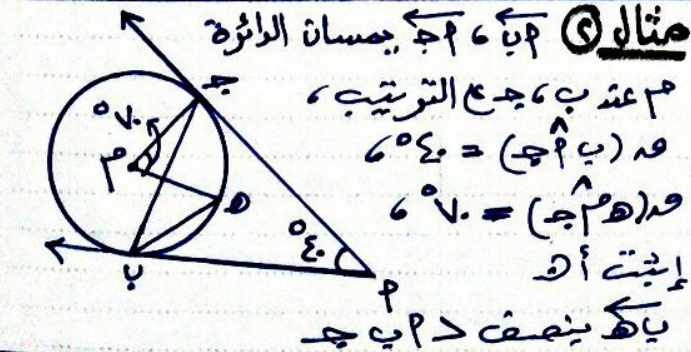 مثال ② أب ، أجـ يمسان الدائرة
م عند ب ، جـ ع الترتيب ،
ق (ب أ جـ) = ٤٠° ،
ق (هـ م جـ) = ٧٠° ،
إثبت أن
ب هـ ينصف > أ ب جـ
جـ
٧٠°
م
هـ
٤٠°
ب
أ